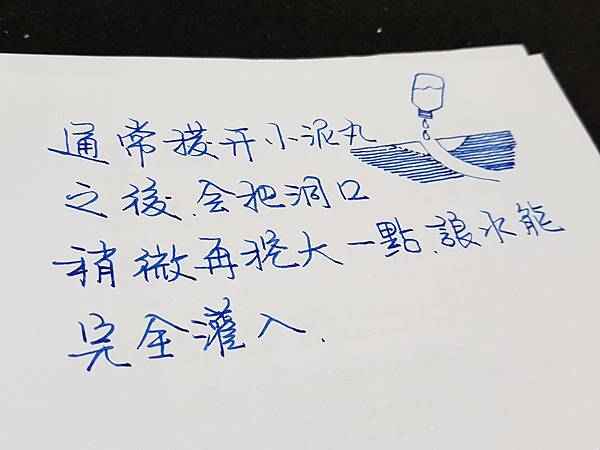 通常撥開小泥丸
之後.会把洞口
稍微再挖大一點.讓水能
完全灌入.